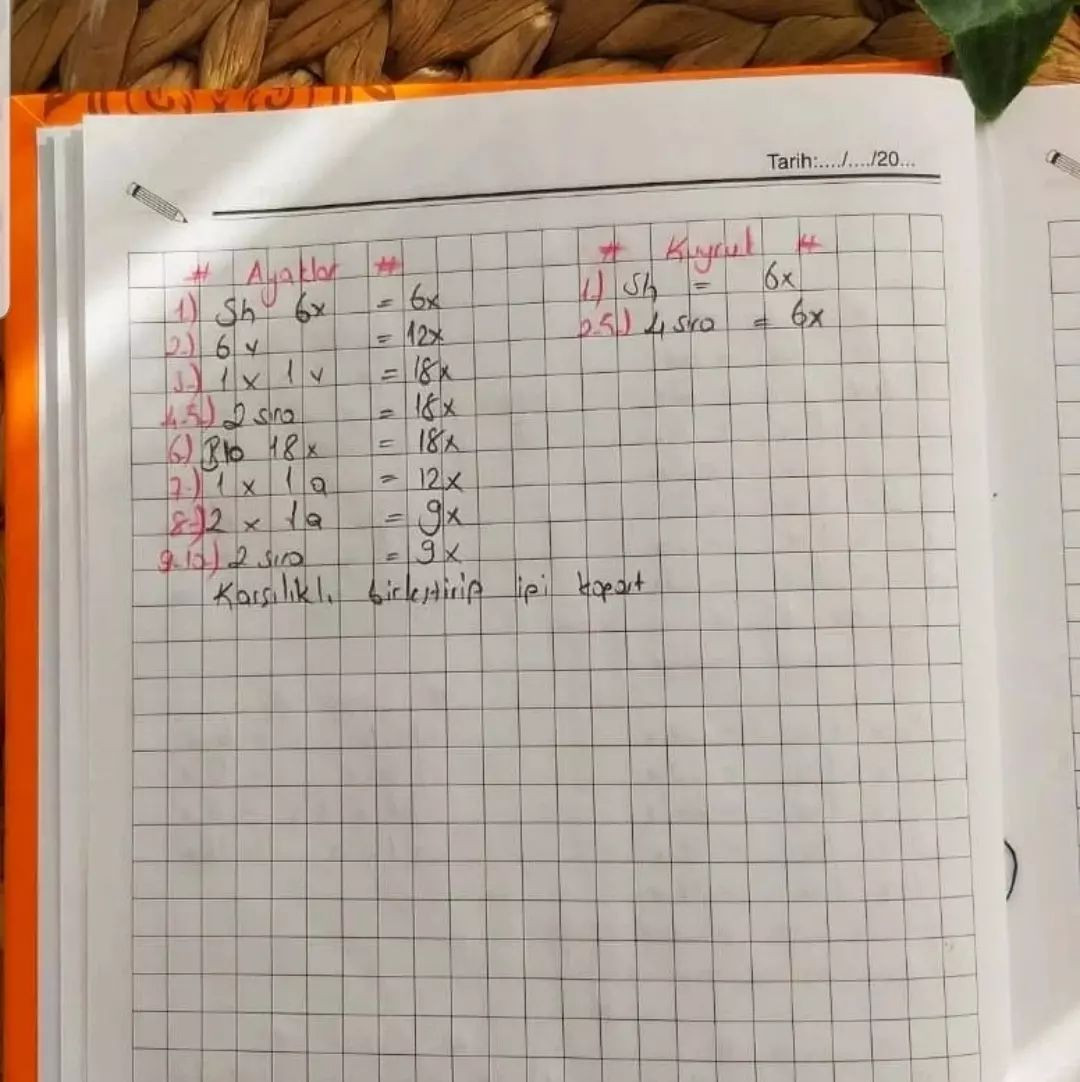 Tarih:..../..../20...
# Ayaklar #
1) Sh 6x = 6x
2.) 6 v = 12x
3.) 1 x 1 v = 18x
4.5.) 2 sıra = 18x
6) Blo 18x = 18x
7.) 1 x 1 a = 12x
8.) 2 x 1a = 9x
9.10.) 2 sıra = 9x
Karşılıklı birleştirip ipi kopart
# Kuyruk #
1.) Sh = 6x
2.5.) 4 sıra = 6x